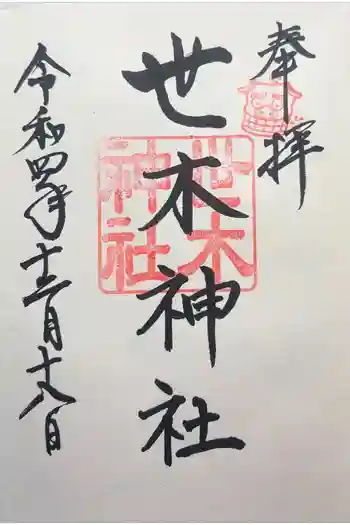 奉拝
世木神社
世木神社
令和四年十二月十八日